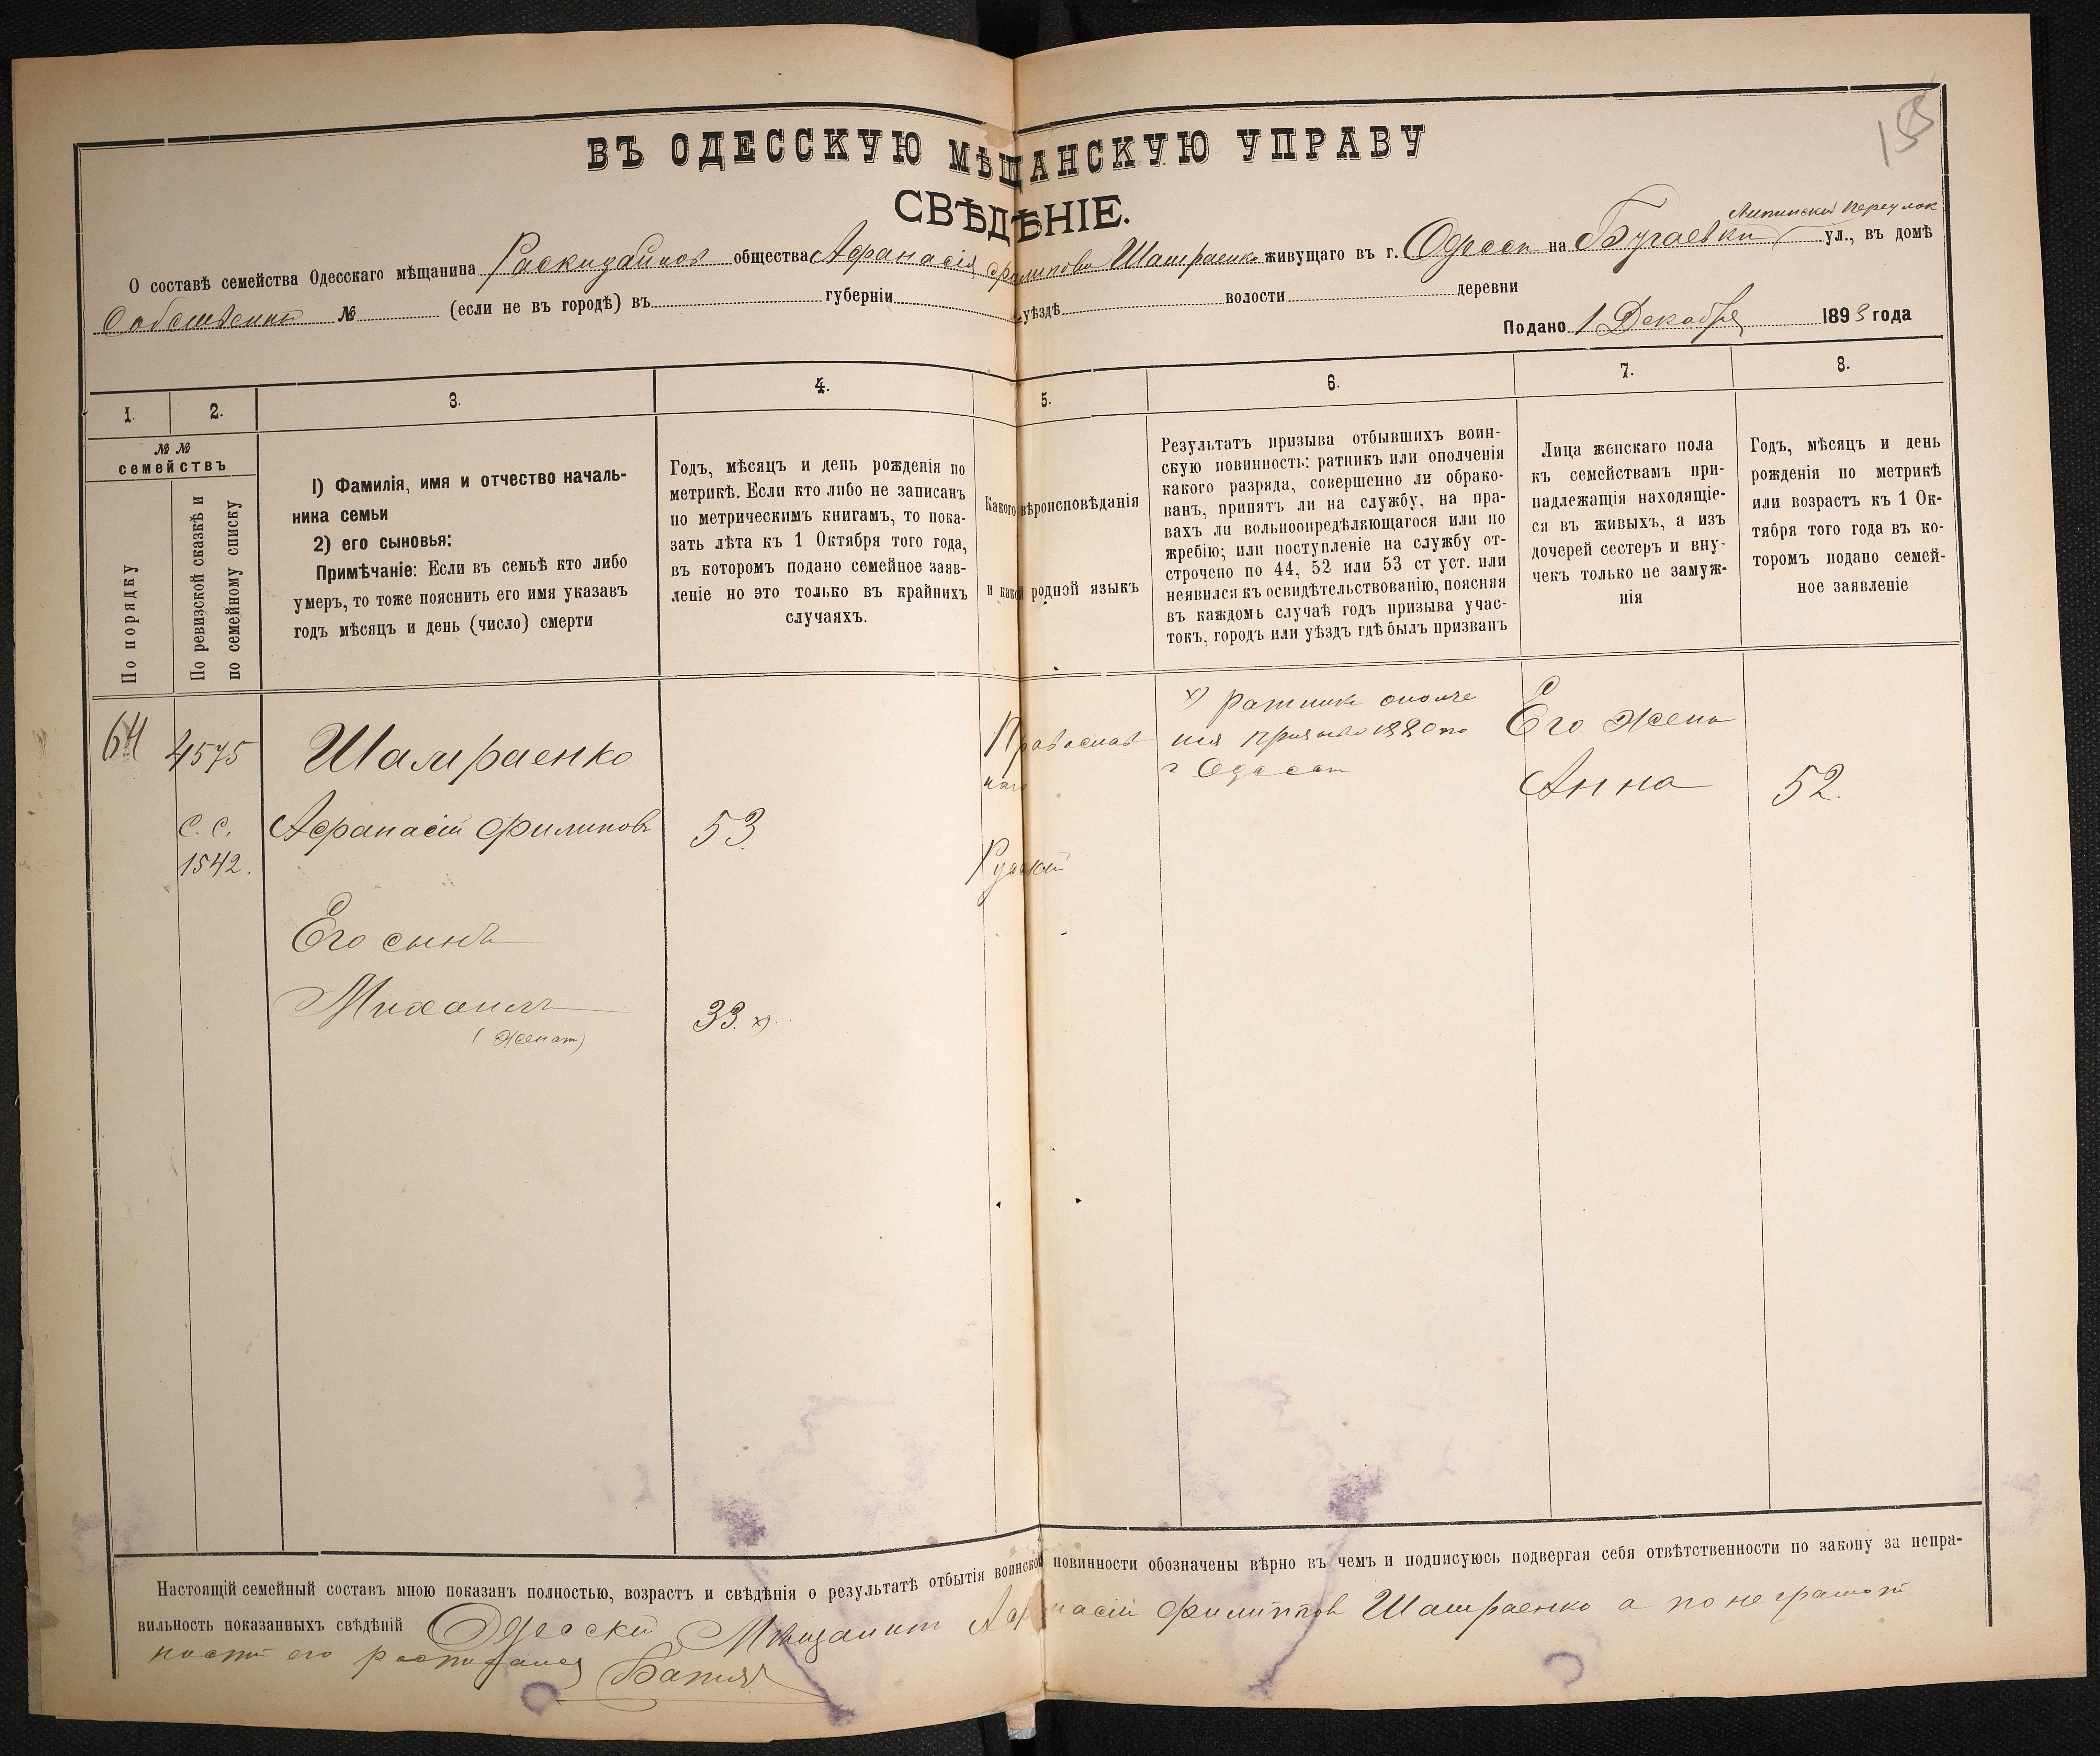 155
ВЪ ОДЕССКУЮ МѢЩАНСКУЮ УПРАВУ
СВѢДѢНІЕ.
переулок
О составѣ семейства Одесскаго мѣщанина Раскидайков общества Афанасія Филипова Шамраенко живущаго въ г. Одессѣ на Бугаевки ул., въ домѣ
Собственом № (если не въ городѣ) въ губерніи уѣздѣ волости деревни
Подано 1 Декабря 1893 года
1. 2. 3. 4. 5. 6. 7. 8.
№ №
семействъ
По порядку
По ревизской сказкѣ и
по семейному списку
1) Фамилія, имя и отчество началь-
ника семьи
2) его сыновья:
Примѣчаніе: Если въ семьѣ кто либо
умеръ, то тоже пояснить его имя указавъ
годъ мѣсяцъ и день (число) смерти
Годъ, мѣсяцъ и день рожденія по
метрикѣ. Если кто либо не записанъ
по метрическимъ книгамъ, то пока-
зать лѣта къ 1 Октября того года,
въ которомъ подано семейное заяв-
леніе но это только въ крайнихъ
случаяхъ.
Какого вѣроисповѣданія
и какой родной языкъ
Результатъ призыва отбывшихъ воин-
скую повинность: ратникъ или ополченія
какого разряда, совершенно ли обрако-
ванъ, принятъ ли на службу, на пра-
вахъ ли вольноопредѣляющагося или по
жребію; или поступленіе на службу от-
строчено по 44, 52 или 53 ст уст. или
неявился къ освидѣтельствованію, поясняя
въ каждомъ случаѣ годъ призыва учас-
токъ, городъ или уѣздъ гдѣ былъ призванъ
Лица женскаго пола
къ семействамъ при-
надлежащія находящіе-
ся въ живыхъ, а изъ
дочерей сестеръ и вну-
чекъ только не замуж-
нія
Годъ, мѣсяцъ и день
рожденія по метрикѣ
или возрастъ къ 1 Ок-
тября того года въ ко-
торомъ подано семей-
ное заявленіе
64 4575 Шамраенко
с. с. Афанасій Филиповъ 53.
1542.
Его сынъ
Михаилъ 33. х)
(женат)
Православ
наго
Руский
х) ратник ополче
ния призыва 1880 го
г Одесса
Его жена
Анна 52.
Настоящій семейный составъ мною показанъ полностью, возрастъ и свѣдѣнія о результатѣ отбытія воинской повинности обозначены вѣрно въ чемъ и подписуюсь подвергая себя отвѣтственности по закону за непра-
вильность показанныхъ свѣдѣній Одески Мещанин Афанасій Филиппов Шамраенко а по неграмот
ности его росписался